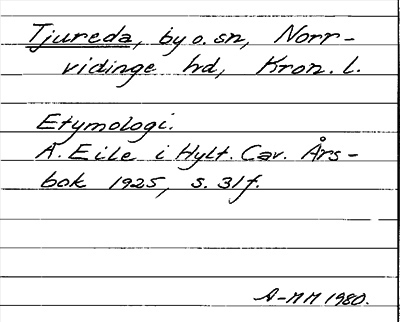 Tjureda, by o. sn, Norr-
vidinge hd, Kron. l.
Etymologi.
A. Eile i Hylt. Cav. Års-
bok 1925, s. 31f.
A-MM 1980.